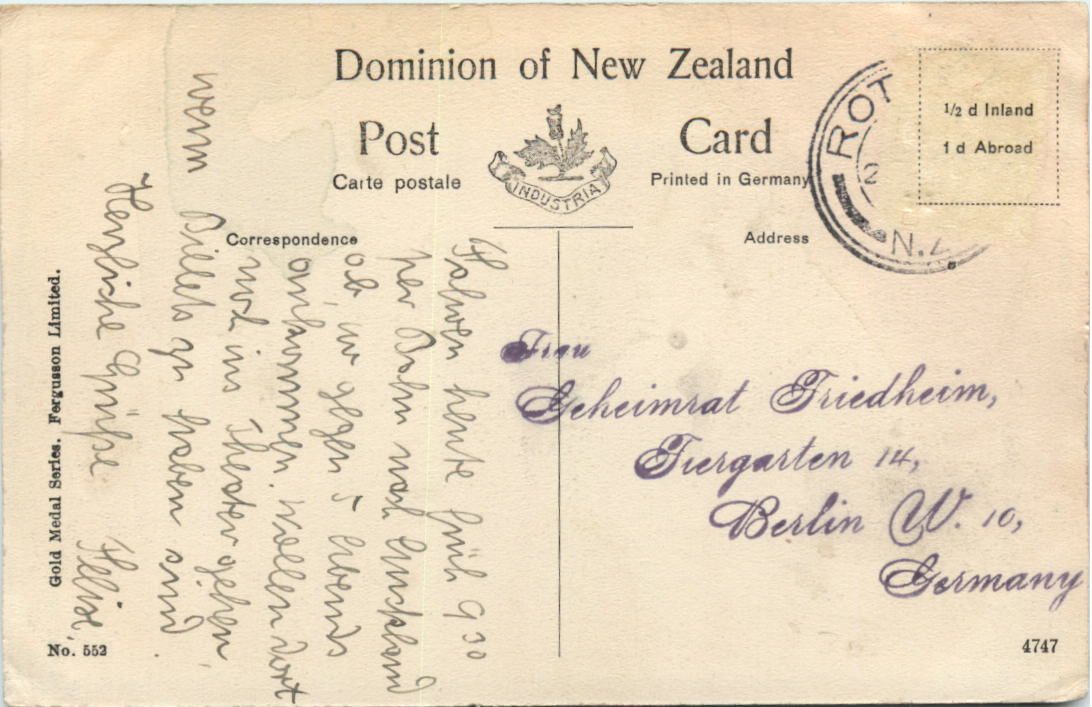 Dominion of New Zealand
Post Card
Carte postale
Printed in Germany
INDUSTRIA
½ d Inland
1 d Abroad
ROT
2
N.Z
Correspondence
Address
Fahren heute früh 9 30
per Bahn nach Auckland
ab, wo gegen 5 Abends
ankommen. Wollen dort
noch ins Theater gehen,
wenn Billets zu haben sind
Herzliche Grüße
Frau
Geheimrat Friedheim,
Tiergarten 14,
Berlin W. 10,
Germany
Gold Medal Series. Fergusson Limited.
No. 552
4747